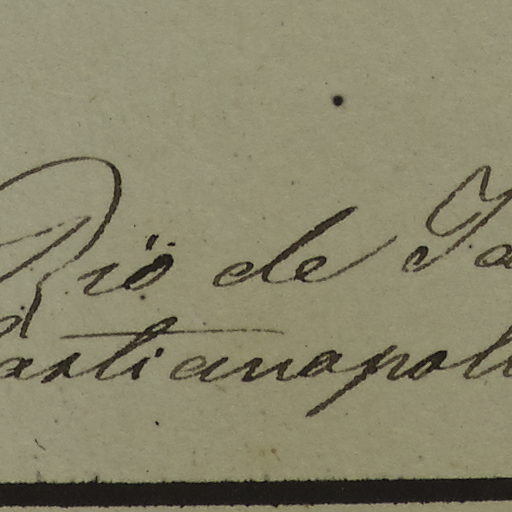 Rio de Ja
astianopol